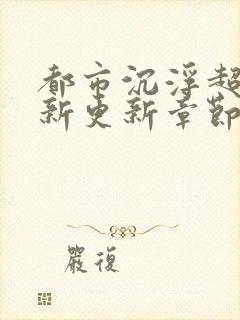 都市沉浮超
新更新章節
嚴復